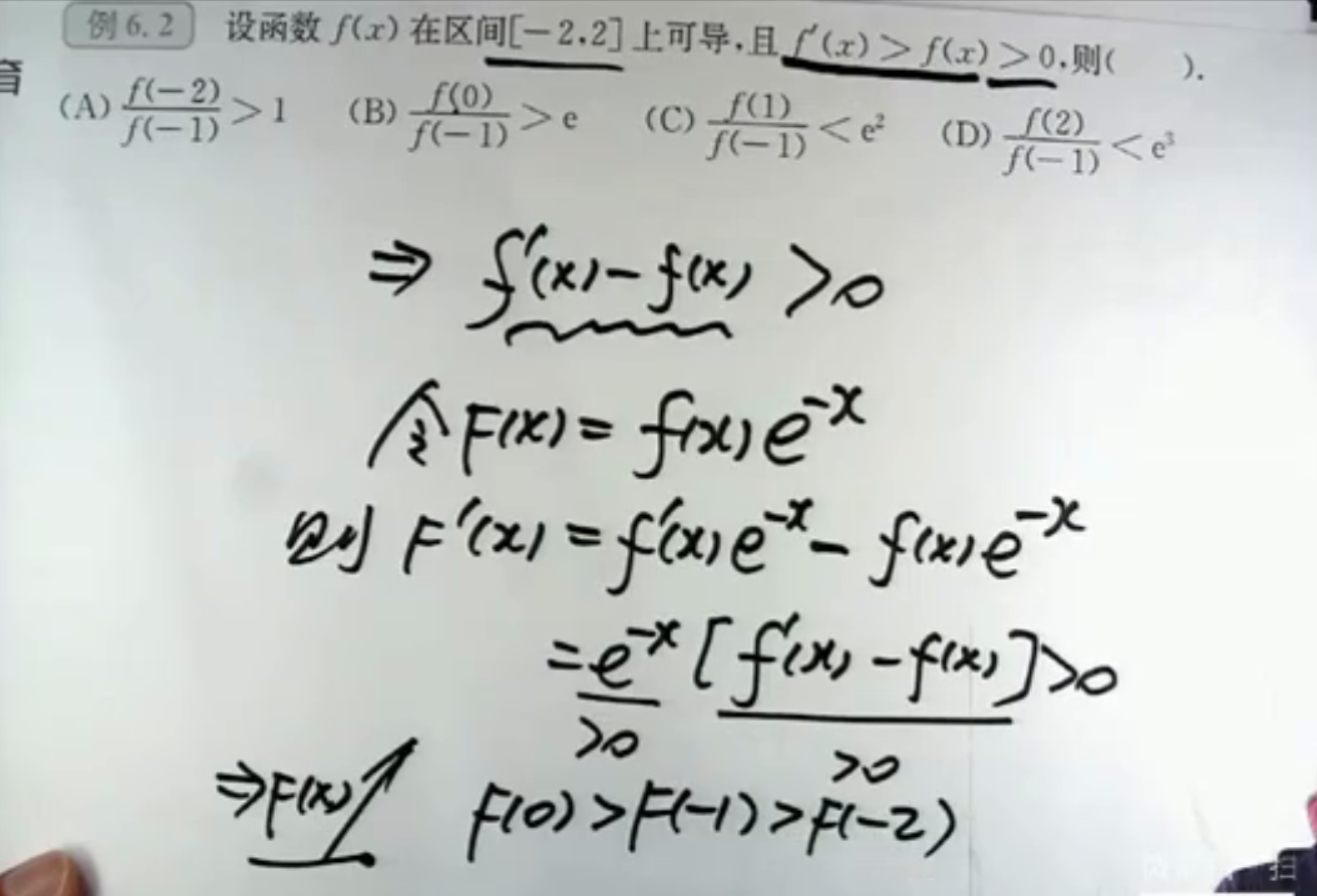 例 6.2 设函数 f(x) 在区间[-2,2] 上可导,且 f′(x) > f(x) > 0,则( ).
(A) f(-2)/f(-1) > 1 (B) f(0)/f(-1) > e (C) f(1)/f(-1) < e² (D) f(2)/f(-1) < e³
⇒ f′(x) - f(x) > 0
令 F(x) = f(x) e^{-x}
则 F′(x) = f′(x) e^{-x} - f(x) e^{-x}
= e^{-x} [f′(x) - f(x)] > 0
>0 >0
⇒ F(x) ↗ F(0) > F(-1) > F(-2)